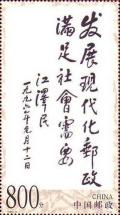 发展现代化邮政
满足社會需要
江泽民
一九九六年元月十二日
800分
CHINA
中国邮政